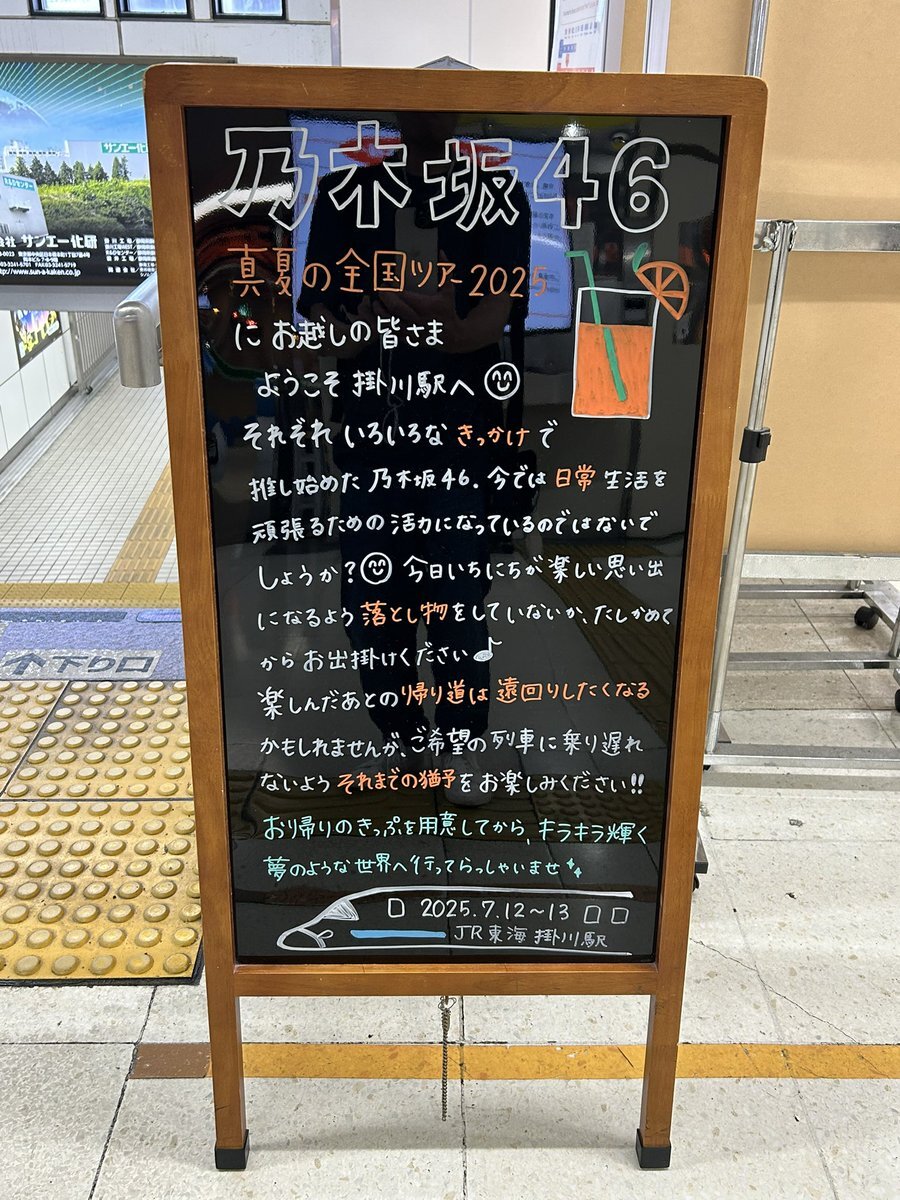 乃木坂46
真夏の全国ツアー2025
に お越しの皆さま
ようこそ 掛川駅へ
それぞれ いろいろな きっかけ で
推し始めた 乃木坂46。今では 日常 生活を
頑張るための 活力になっているのではないで
しょうか? 今日いちにちが 楽しい思い出
になるよう 落とし物をしていないか、たしかめて
からお出掛けください♪
楽しんだあとの帰り道は 遠回りしたくなる
かもしれませんが、ご希望の列車に乗り遅れ
ないよう それまでの猶予をお楽しみください!!
おり帰りのきっぷを用意してから、キラキラ輝く
夢のような世界へ行ってらっしゃいませ
2025.7.12~13
JR東海 掛川駅
サンエー化研
http://www.sun-a-kaken.co.jp
下り口